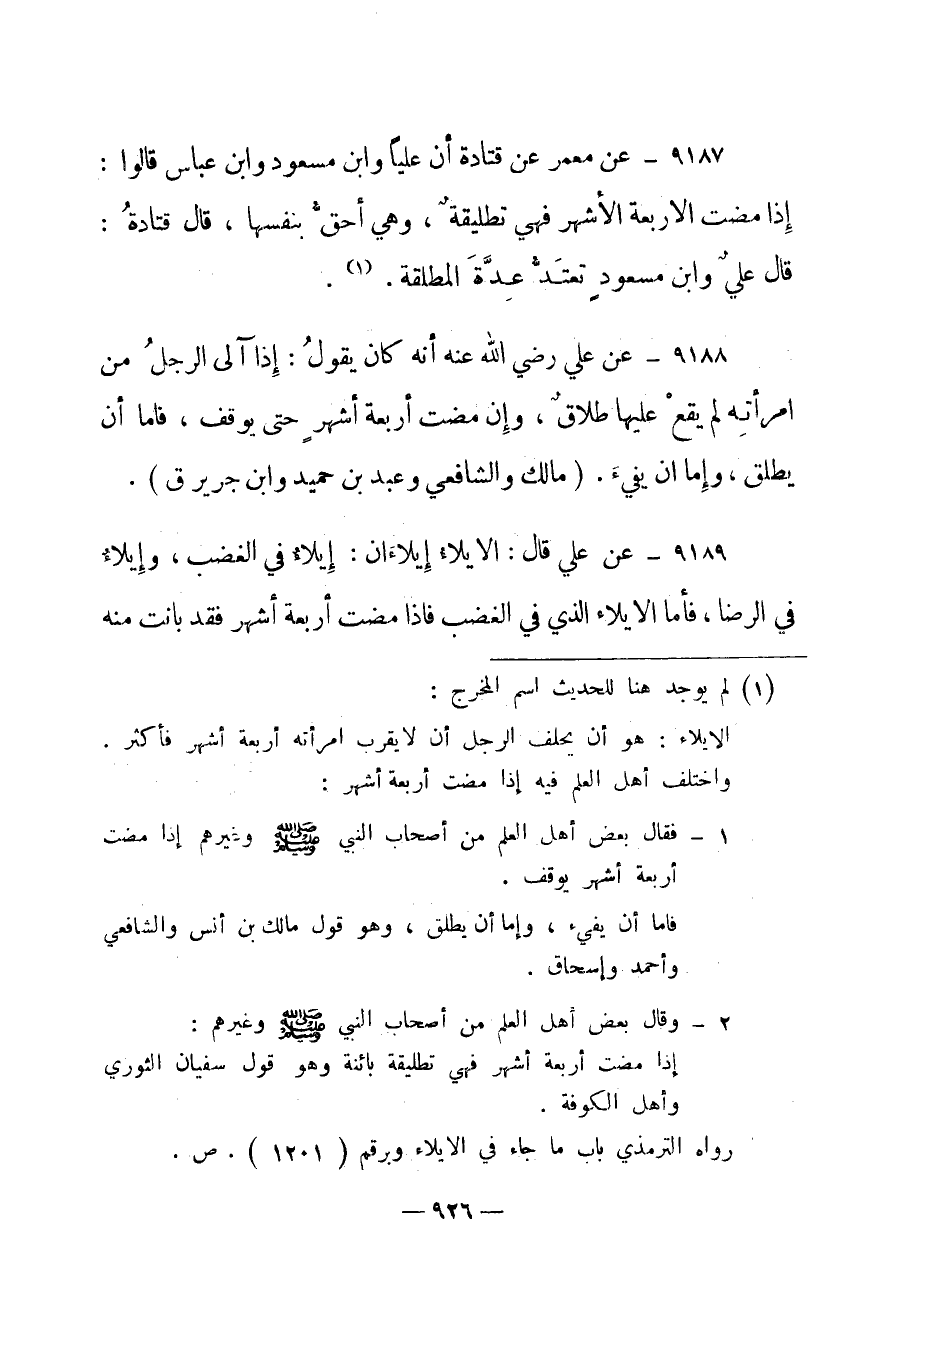 ٩١٨٧ ـ عن معمر عن قتادة أن علياً وابن مسعود وابن عباس قالوا :
إذا مضت الاربعة الأشهر فهي تطليقةٌ ، وهي أحقُّ بنفسها ، قال قتادةُ :
قال عليٌ وابن مسعودٍ تعتَدُّ عِدَّةَ المطلقة . (١) .
٩١٨٨ ـ عن علي رضي الله عنه أنه كان يقولُ : إذا آلى الرجلُ من
امرأتِه لم يقعْ عليها طلاقٌ ، وإن مضت أربعة أشهرٍ حتى يوقف ، فاما أن
يطلق ، وإما ان يفيءَ . ( مالك والشافعي وعبد بن حميد وابن جرير ق ) .
٩١٨٩ ـ عن علي قال : الايلاء إيلاءَان : إيلاءٌ في الغضب ، وإيلاءٌ
في الرضا ، فأما الايلاء الذي في الغضب فاذا مضت أربعة أشهر فقد بانت منه
(١) لم يوجد هنا للحديث اسم المخرج :
الايلاء : هو أن يحلف الرجل أن لا يقرب امرأته أربعة أشهر فأكثر .
واختلف أهل العلم فيه إذا مضت أربعة أشهر :
١ ـ فقال بعض أهل العلم من أصحاب النبي ﷺ وغيرهم إذا مضت
أربعة أشهر يوقف .
فاما أن يفيء ، وإما أن يطلق ، وهو قول مالك بن أنس والشافعي
وأحمد وإسحاق .
٢ ـ وقال بعض أهل العلم من أصحاب النبي ﷺ وغيرهم :
إذا مضت أربعة أشهر فهي تطليقة بائنة وهو قول سفيان الثوري
وأهل الكوفة .
رواه الترمذي باب ما جاء في الايلاء وبرقم ( ١٢٠١ ) . ص .
— ٩٢٦ —